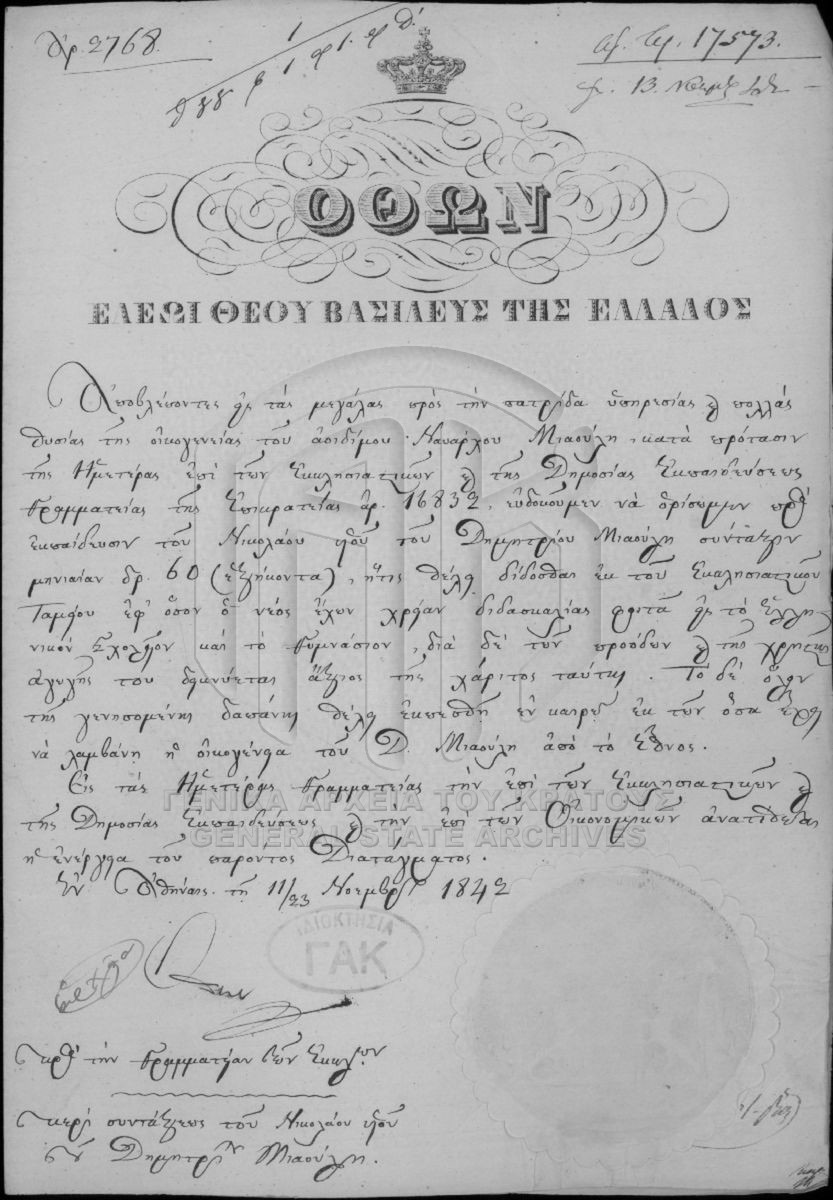 Ἀρ. 2768.
Ἀρ. Πρ. 17573.
13. Νοεμβ
ΟΘΩΝ
ΕΛΕΩΙ ΘΕΟΥ ΒΑΣΙΛΕΥΣ ΤΗΣ ΕΛΛΑΔΟΣ
Ἀποβλέποντες εἰς τὰς μεγάλας πρὸς τὴν πατρίδα ὑπηρεσίας καὶ πολλὰς
θυσίας τῆς οἰκογενείας τοῦ ἀοιδίμου Ναυάρχου Μιαούλη, κατὰ πρότασιν
τῆς Ἡμετέρας ἐπὶ τῶν Ἐκκλησιαστικῶν καὶ τῆς Δημοσίας Ἐκπαιδεύσεως
Γραμματείας τῆς Ἐπικρατείας ἀρ. 16832, εὐδοκοῦμεν νὰ ὁρίσωμεν πρὸς
ἐκπαίδευσιν τοῦ Νικολάου υἱοῦ τοῦ Δημητρίου Μιαούλη σύνταξιν
μηνιαίαν δρ. 60 (ἑξήκοντα), ἥτις θέλει δίδοσθαι ἐκ τοῦ Ἐκκλησιαστικοῦ
Ταμείου ἐφ' ὅσον ὁ νέος ἔχων χρείαν διδασκαλίας φοιτᾷ εἰς τὸ Ἑλλη-
νικὸν Σχολεῖον καὶ τὸ Γυμνάσιον, διὰ δὲ τῶν προόδων καὶ τῆς χρηστῆς
ἀγωγῆς του δεικνύεται ἄξιος τῆς χάριτος ταύτης. Τὸ δὲ ὅλον
τῆς γενησομένης δαπάνης θέλει ἐκπεσθῆ ἐν καιρῷ ἐκ τῶν ὅσα ἔχει
νὰ λαμβάνῃ ἡ οἰκογένεια τοῦ Δ. Μιαούλη ἀπὸ τὸ Ἔθνος.
Εἰς τὰς Ἡμετέρας Γραμματείας τὴν ἐπὶ τῶν Ἐκκλησιαστικῶν καὶ
τῆς Δημοσίας Ἐκπαιδεύσεως καὶ τὴν ἐπὶ τῶν Οἰκονομικῶν ἀνατίθεται
ἡ ἐνέργεια τοῦ παρόντος Διατάγματος.
Ἐν Ἀθήναις τῇ 11/23 Νοεμβρίου 1842
ΓΕΝΙΚΑ ΑΡΧΕΙΑ ΤΟΥ ΚΡΑΤΟΥΣ
GENERAL STATE ARCHIVES
ΙΔΙΟΚΤΗΣΙΑ
ΓΑΚ
πρὸς τὴν Γραμματείαν τῶν Ἐκκλησ.
περὶ συντάξεως τοῦ Νικολάου υἱοῦ
τοῦ Δημητρίου Μιαούλη.